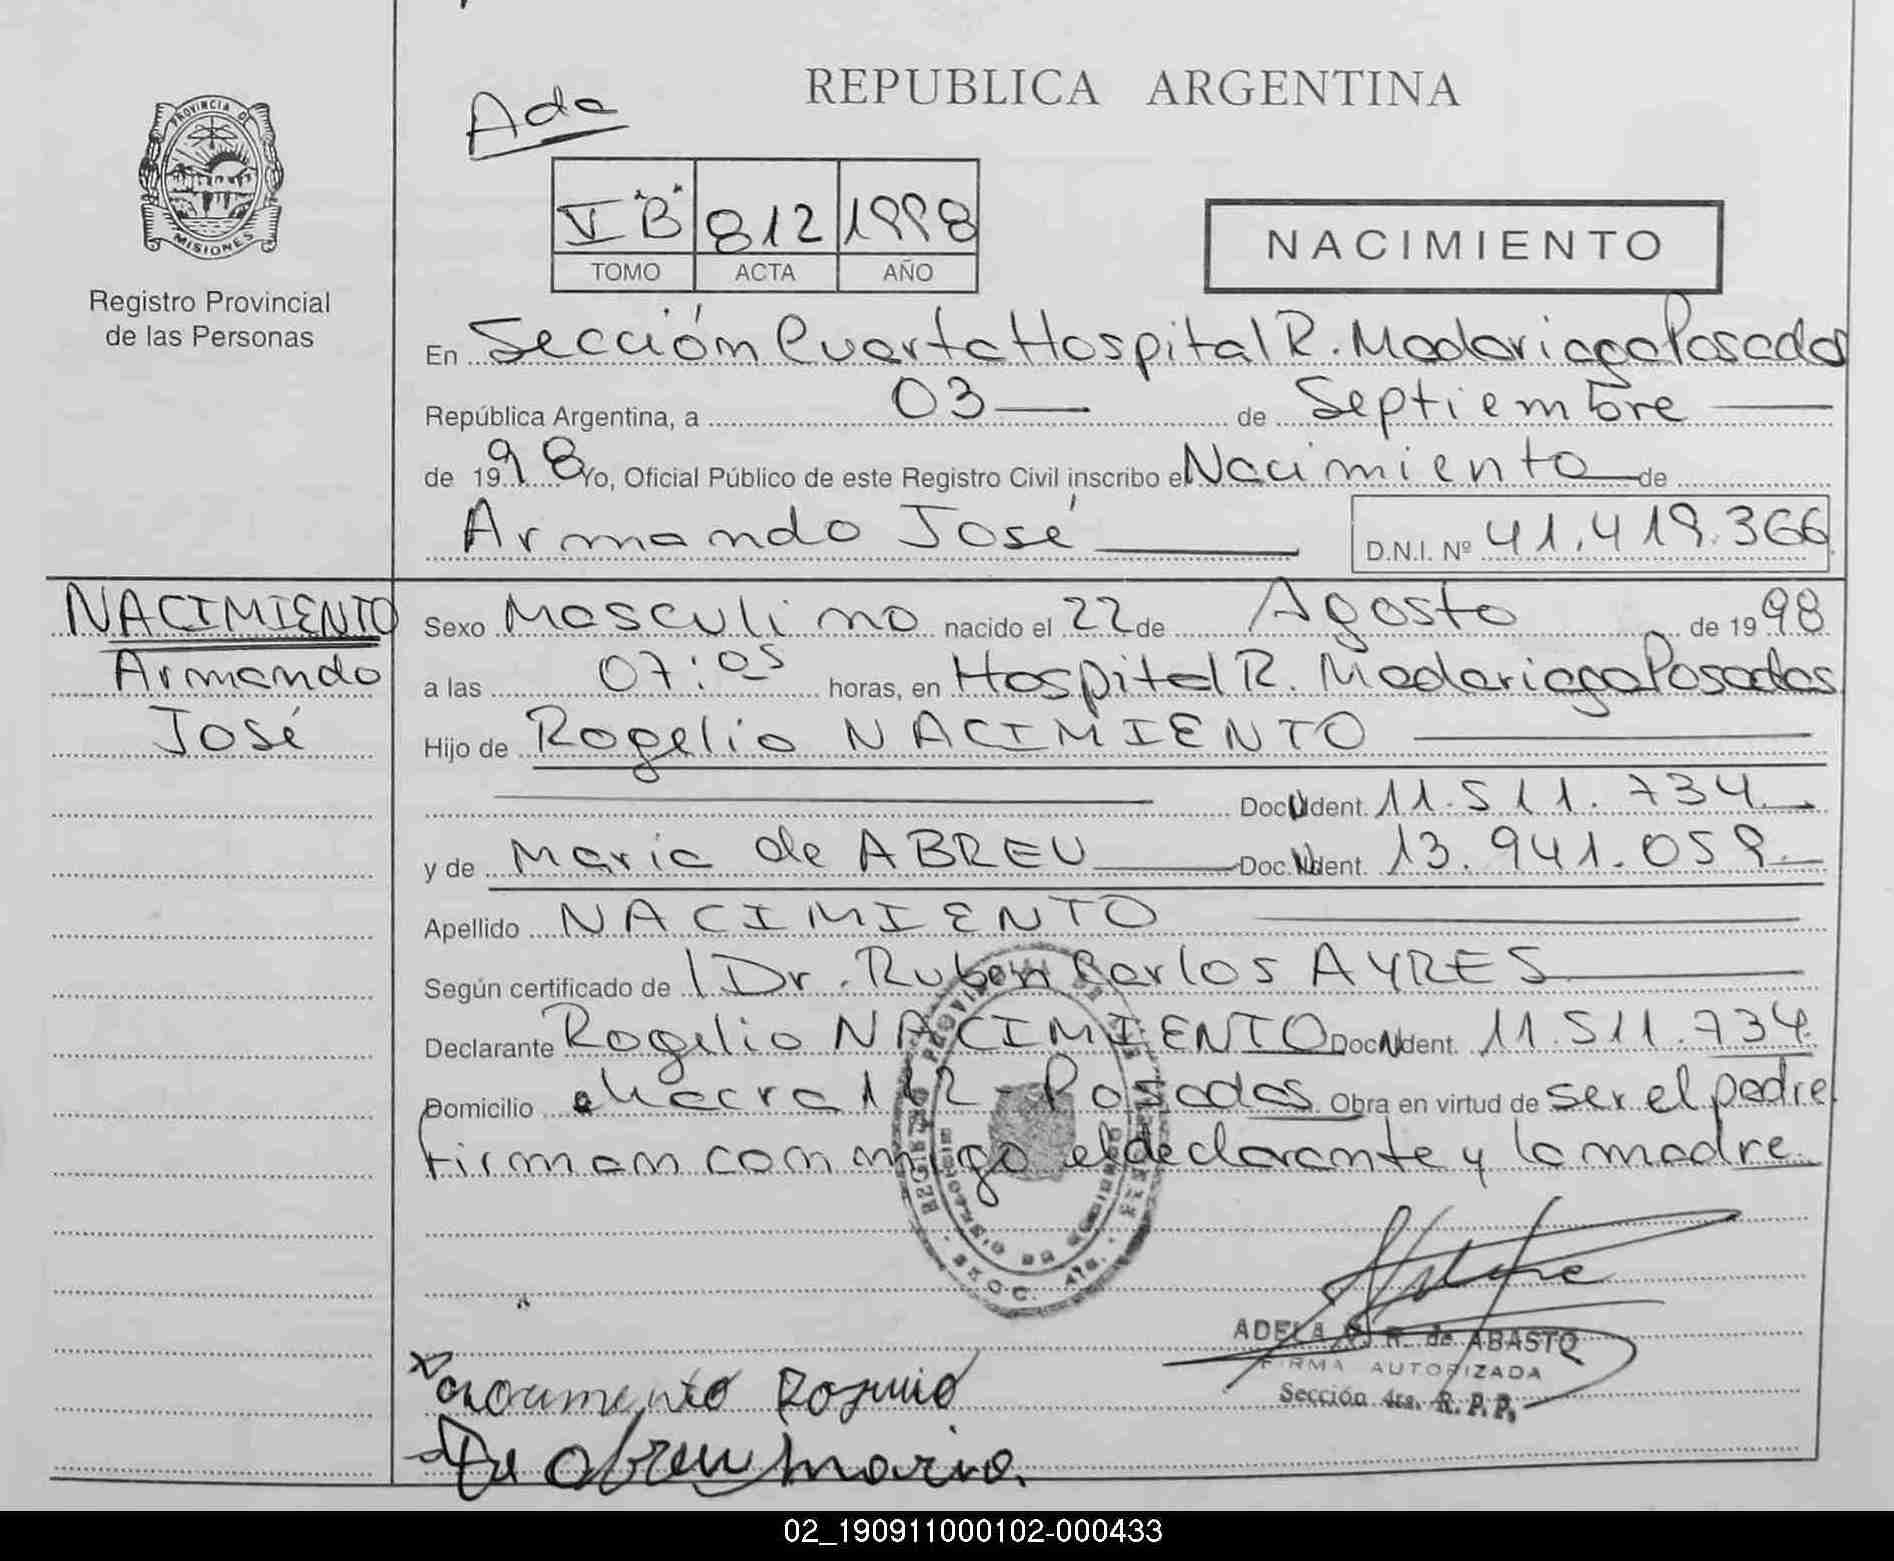 REPUBLICA ARGENTINA
Ada
PROVINCIA DE
MISIONES
Registro Provincial
de las Personas
V "B" 812 1998
TOMO ACTA AÑO
NACIMIENTO
En Sección Cuarta Hospital R. Madariaga Posadas
República Argentina, a 03 de Septiembre
de 1998 Yo, Oficial Público de este Registro Civil inscribo el Nacimiento de
Armando José D.N.I. Nº 41.419.366
NACIMIENTO
Armando
José
Sexo Masculino nacido el 22 de Agosto de 1998
a las 07:05 horas, en Hospital R. Madariaga Posadas
Hijo de Rogelio NACIMIENTO
Doc. Ident. 11.511.734
y de Maria de ABREU Doc. Ident. 13.941.059
Apellido NACIMIENTO
Según certificado de Dr. Ruben Carlos AYRES
Declarante Rogelio NACIMIENTO Doc. Ident. 11.511.734
Domicilio Posadas Obra en virtud de ser el padre
firman conmigo el declarante y la madre
ADELA R. de ABASTO
FIRMA AUTORIZADA
Sección 4ta. R. P. P.
De abreu maria
02_190911000102-000433